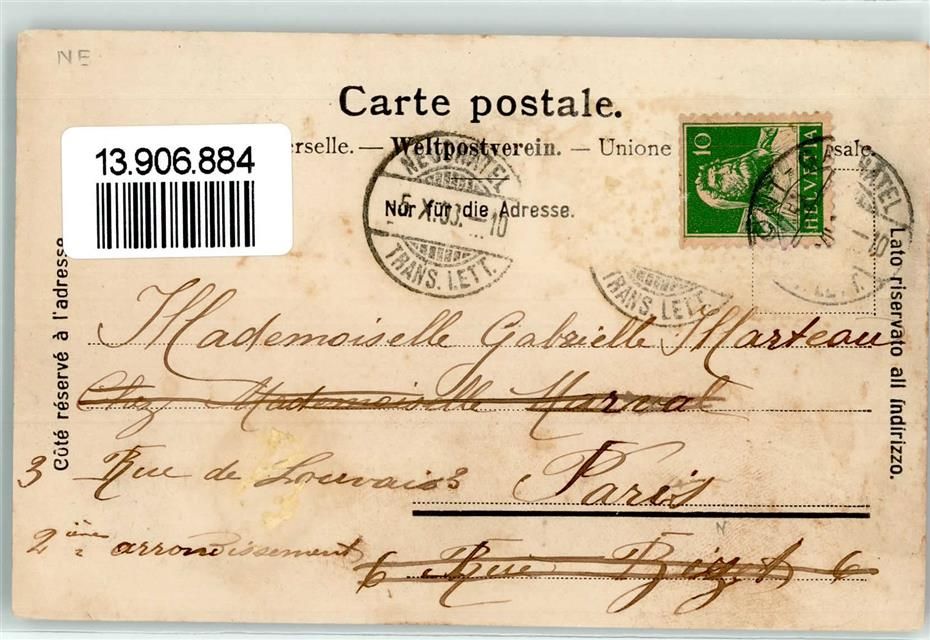 NE
Carte postale.
13.906.884
erselle. — Weltpostverein. — Unione sale
NEUCHATEL
5. X. 03. — 10
TRANS. LETT.
Nur für die Adresse.
10
HELVETIA
HATEL
10
TRANS. LETT.
Côté réservé à l'adresse
Lato riservato all indirizzo.
Mademoiselle Gabrielle Marteau
Chez Mademoiselle Marval
3 Rue de Louvois Paris
2ième arrondissement
6 Rue 6
N